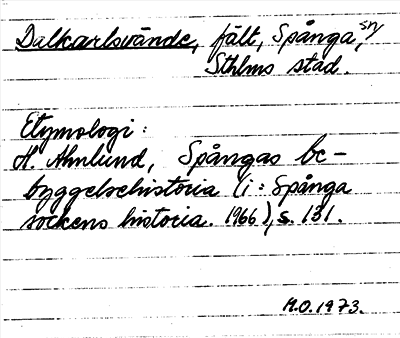 Dalkarlsvände, fält, Spånga, sn,
Sthlms stad.
Etymologi:
H. Ahnlund, Spångas be-
byggelsehistoria (i: Spånga
sockens historia. 1966), s. 131.
M.O. 1973.